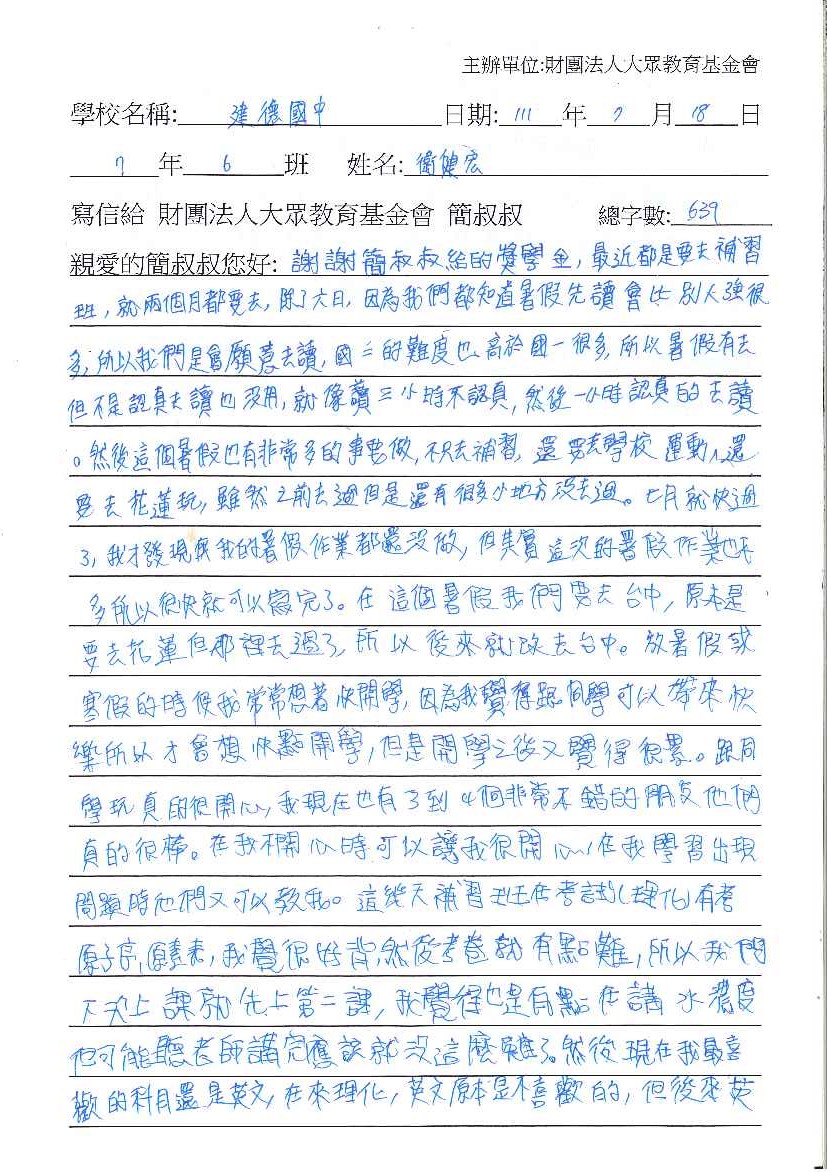 主辦單位:財團法人大眾教育基金會
學校名稱: 建德國中 日期: 111 年 7 月 18 日
7 年 6 班 姓名: 衛健宏
寫信給 財團法人大眾教育基金會 簡叔叔 總字數: 639
親愛的簡叔叔您好: 謝謝簡叔叔給的獎學金，最近都是要去補習
班，就兩個月都要去，除了六日，因為我們都知道暑假先讀會比別人強很
多，所以我們是會願意去讀，國二的難度也高於國一很多，所以暑假有去
但不是認真去讀也沒用，就像讀三小時不認真，然後一小時認真的去讀
。然後這個暑假也有非常多的事要做，不只去補習，還要去學校運動、還
要去花蓮玩，雖然之前去過但是還有很多小地方沒去過。七月就快過
了，我才發現我的暑假作業都還沒做，但其實這次的暑假作業也不
多所以很快就可以寫完了。在這個暑假我們要去台中，原本是
要去花蓮但那裡去過了，所以後來就改去台中。放暑假或
寒假的時候我常常想著快開學，因為我覺得跟同學可以帶來快
樂所以才會想快點開學，但是開學之後又覺得很累。跟同
學玩真的很開心，我現在也有3到4個非常不錯的朋友他們
真的很棒。在我不開心時可以讓我很開心，在我學習出現
問題時他們又可以教我。這幾天補習班在考試(理化)有考
原子序，原素表，我覺很好背，然後考卷就有點難，所以我們
下次上課就先上第二課，我覺得也是有點在講水濃度
但可能聽老師講完應該就沒這麼難了。然後現在我最喜
歡的科目還是英文，在來理化，英文原本是不喜歡的，但後來英